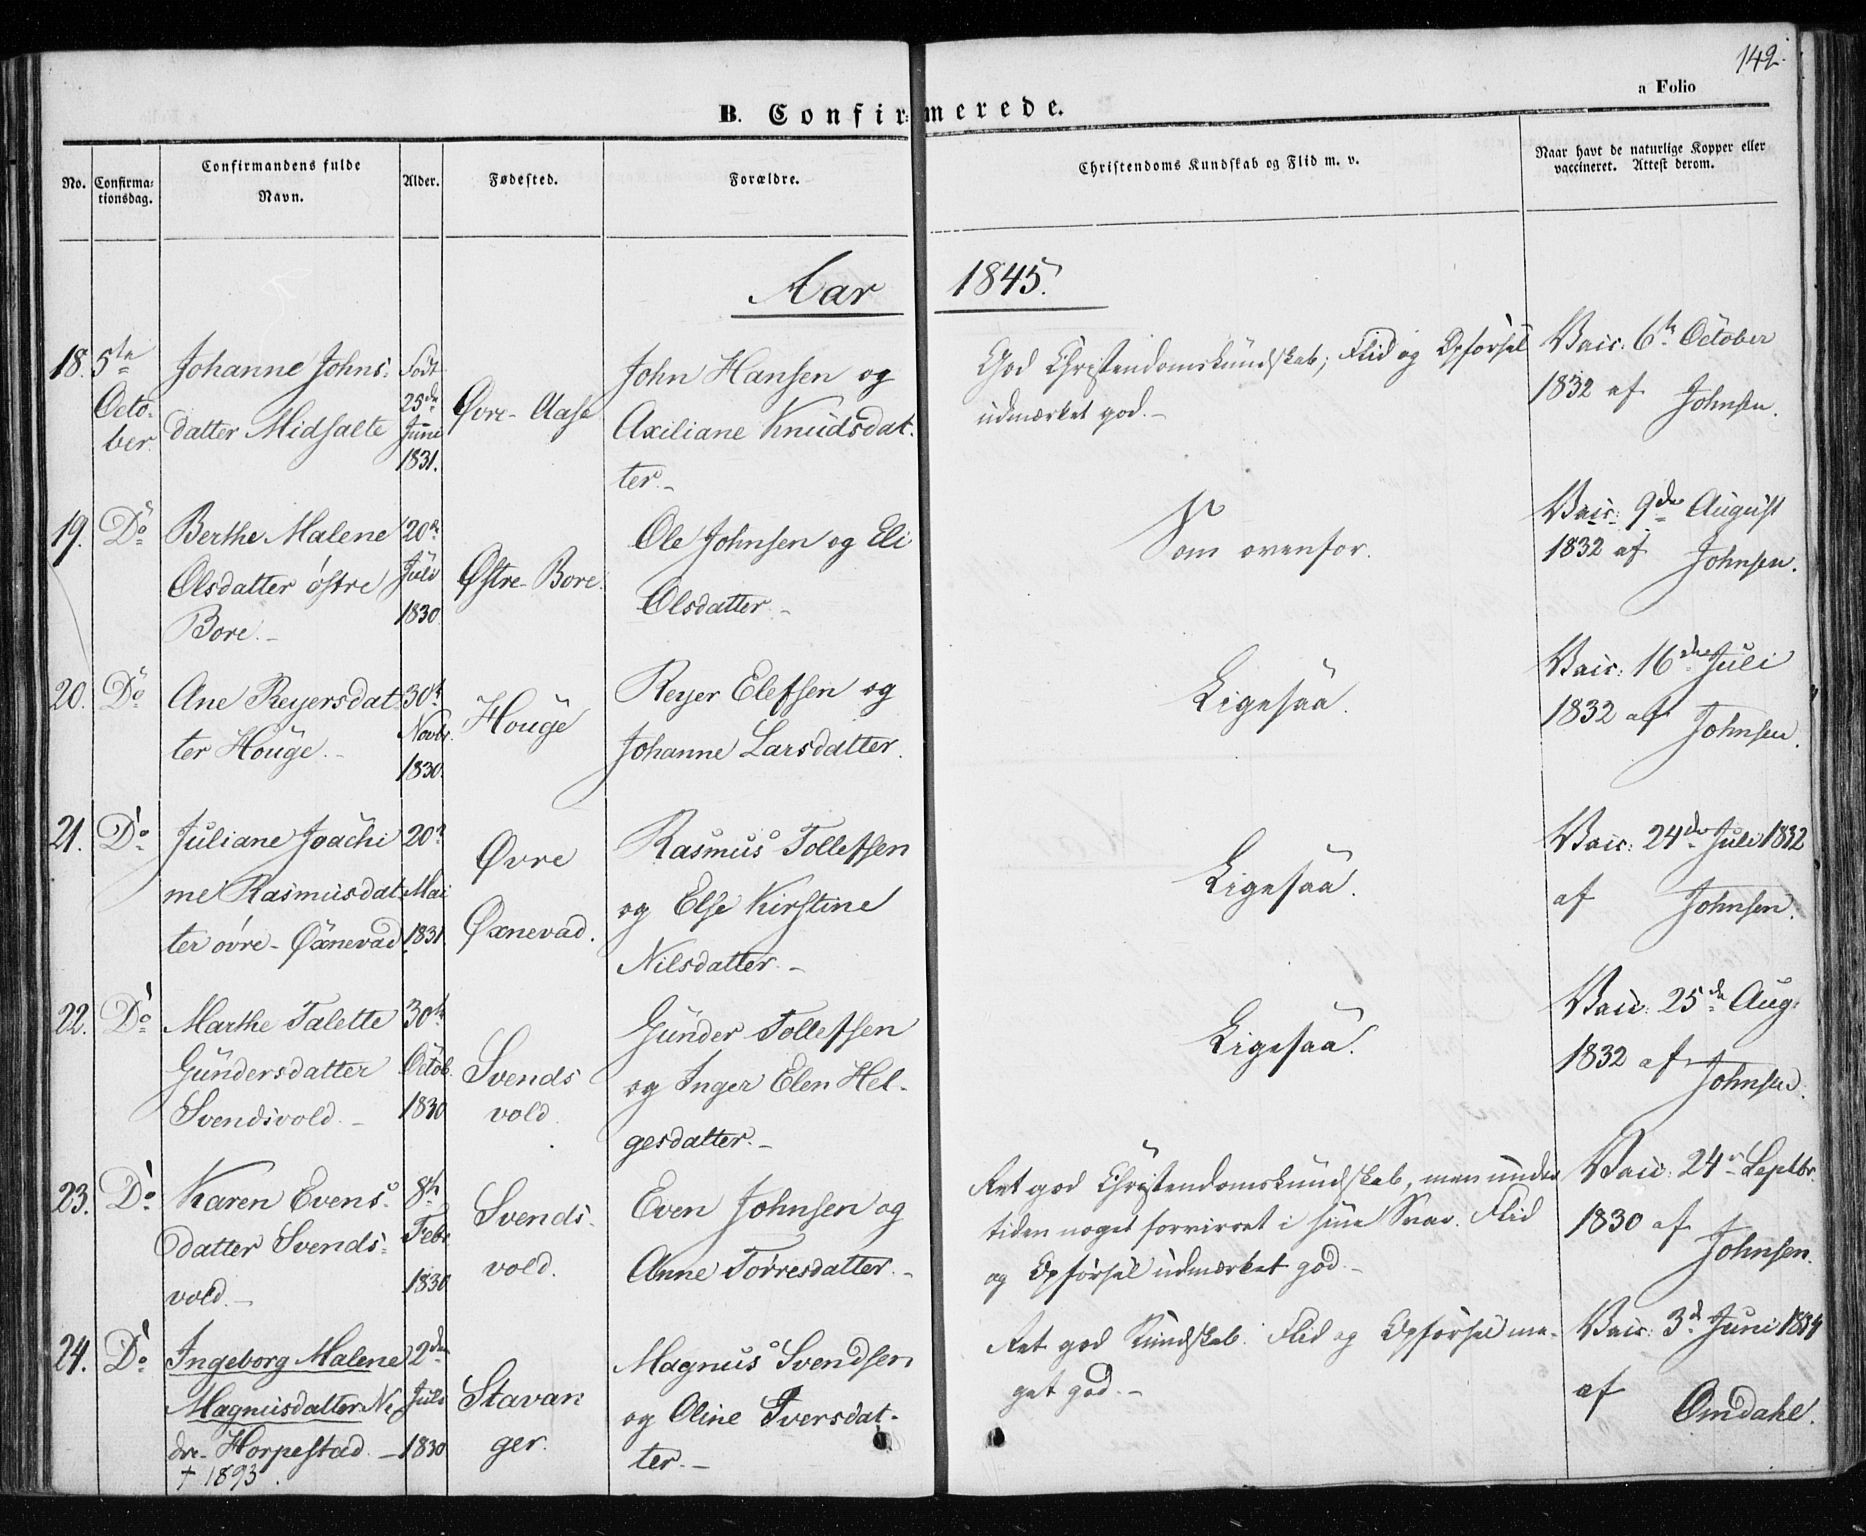 142.
a Folio
B. Confirmerede.
No.
Confirma-
tionsdag.
Confirmandens fulde
Navn.
Alder.
Fødested.
Forældre.
Christendoms Kundskab og Flid m. v.
Naar havt de naturlige Kopper eller
vaccineret. Attest derom.
Aar 1845.
18.
5te
Octo-
ber.
Johanne Johns-
datter Midsaete
Födt
25de
Juni
1831.
Øvre-Aase
John Hansen og
Axiliane Knudsdat-
ter.-
God Christendomskundskab; Flid og Opførsel
udmærket god.-
Vacc. 6te October
1832 af Johnsen.
19.
Do
Berthe Malene
Olsdatter östre
Bore.-
20de
Juli
1830
Østre-Bore.
Ole Johnsen og Eli
Olsdatter.-
Som ovenfor.
Vacc: 9de August
1832 af Johnsen.
20.
Do
Ane Reyersdat-
ter Houge.-
30te
Novbr.
1830.
Houge
Reyer Elefsen og
Johanne Larsdatter.
Ligesaa.
Vacc: 16de Juli
1832 af Johnsen.
21.
Do
Juliane Joachi
me Rasmusdat-
ter övre-Öxnevad
20de
Mai
1831.
Øvre
Øxnevad.
Rasmus Tollefsen
og Else Kirstine
Nilsdatter.-
Ligesaa.
Vacc: 24de Juli 1832
af Johnsen.
22.
Do
Marthe Talette
Gundersdatter
Svendsvold.-
30te
Octob.
1830
Svends
vold.
Gunder Tollefsen
og Inger Elen Hel-
gesdatter.-
Ligesaa.
Vacc: 25de Aug:
1832 af Johnsen.
23.
Do
Karen Evens-
datter Svends-
vold.-
8te
Febr
1830
Svends-
vold.
Even Johnsen og
Anne Torresdatter.-
Ret god Christendomskundskab, men under
tiden noget forvirret i sine Svar. Flid
og Opførsel udmærket god.-
Vacc: 24de Septbr.
1830 af Johnsen.
24.
Do
Ingeborg Malene
Magnusdatter Ne-
dre-Horpestad.-
† 1893.
2den
Juli
1830
Stavan
ger.
Magnus Svendsen
og Oline Iversdat-
ter.-
Ret god Kundskab. Flid og Opførsel me-
get god.-
Vacc: 3de Juni 1834
af Omdahl.